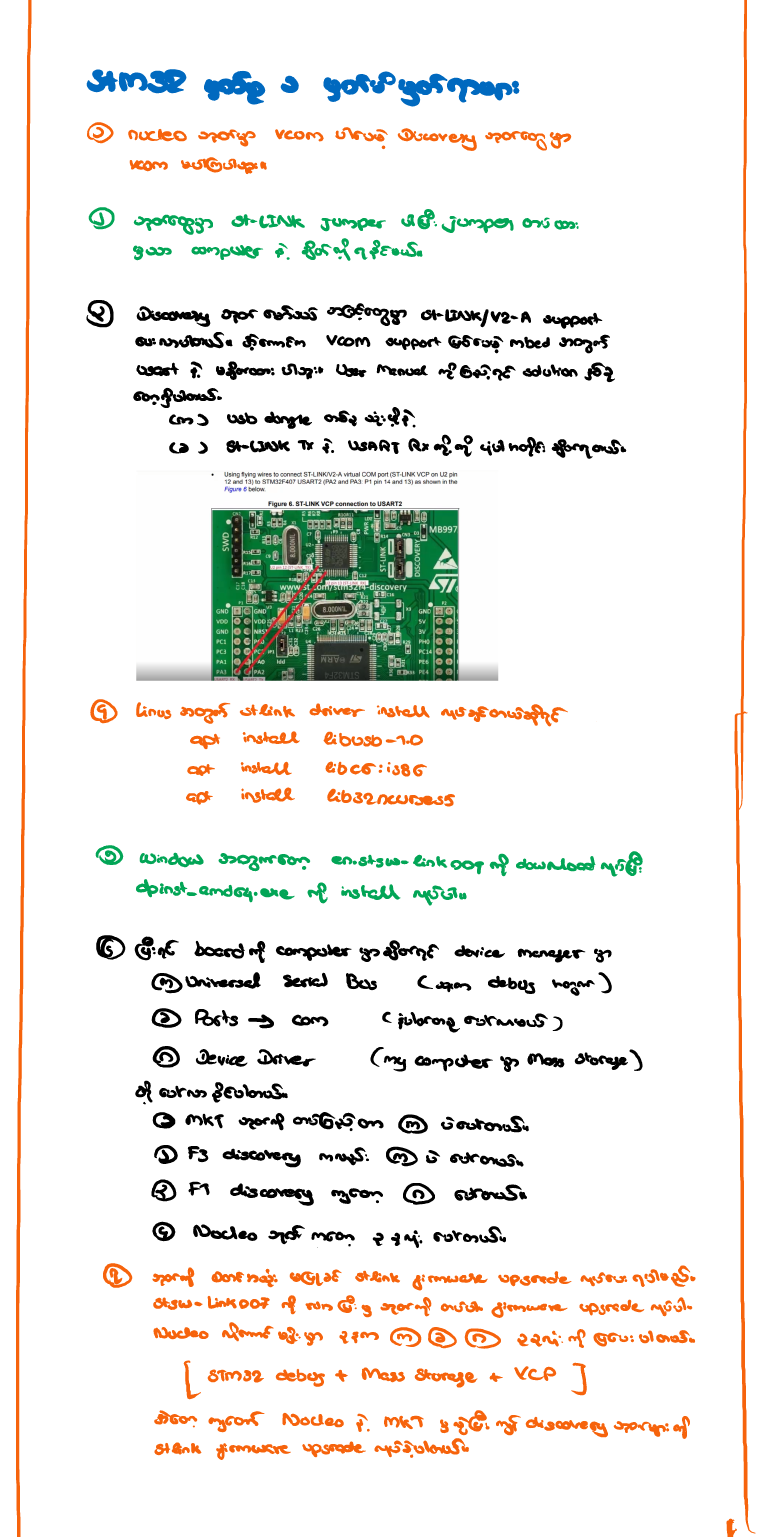 STM32 မှတ်စု ၁ မှတ်မိမှတ်ရာများ
၁ nucleo ဘုတ်မှာ vcom ပါပေမဲ့ Discovery ဘုတ်တွေမှာ
vcom မပါကြပါဘူး။
၂ ဘုတ်တွေမှာ ST-LINK jumper ပါပြီး jumper တပ်ထား
မှသာ computer နဲ့ ချိတ်လို့ ရနိုင်မယ်။
၃ Discovery ဘုတ် တော်တော် အဆင့်တွေမှာ ST-LINK/V2-A support
ပေးလာပါတယ်။ ဆိုတော့ကာ VCOM support ဖြစ်ပေမဲ့ mbed အတွက်
usart နဲ့ မချိတ်ထား ပါဘူး။ User Manual ကိုကြည့်ရင် solution နှစ်ခု
တွေ့ရှိပါတယ်။
(က) usb dongle တစ်ခု သုံးဖို့နဲ့
(ခ) ST-LINK Tx နဲ့ USART Rx တို့ကို ပုံပါအတိုင်း ချိတ်ရတယ်။
• Using flying wires to connect ST-LINK/V2-A virtual COM port (ST-LINK VCP on U2 pin
12 and 13) to STM32F407 USART2 (PA2 and PA3: P1 pin 14 and 13) as shown in the
Figure 6 below.
Figure 6. ST-LINK VCP connection to USART2
SWD
8.000NIL
ST-LINK
DISCOVERY
MB997
www.st.com/stm32f4-discovery
8.000NIL
GND GND
VDD VDD
GND NRST
PC1 PC0
PC3 PC2
PA1 PA0
PA3 PA2
ARM
GND
5V
3V
PH0
PC14
PE6
PE4
၄ linus အတွက် stlink driver install လုပ်ချင်တယ်ဆိုရင်
apt install libusb-1.0
apt install libc6:i386
apt install lib32ncurses5
၅ Window အတွက်ကတော့ en.stsw-link009 ကို download လုပ်ပြီး
dpinst_amd64.exe ကို install လုပ်ပါ။
၆ ပြီးရင် board ကို computer မှာချိတ်ရင် device manager မှာ
(က) Universal Serial Bus
(ခ) Ports → com
(ဂ) Device Driver (my computer မှာ Mass Storage)
တို့ ပေါ်လာ နိုင်ပါတယ်။
၁ MKT ဘုတ်ကို တပ်ကြည့်တာ (က) ပဲပေါ်တယ်။
၂ F3 discovery ကလည်း (က) ပဲ ပေါ်တယ်။
၃ F7 discovery ကျတော့ (ဂ) ပေါ်တယ်။
၄ Nucleo ဘုတ် ကတော့ ၃ ခုလုံး ပေါ်တယ်။
၇ ဘုတ်ကို စတင်အသုံး မပြုခင် stlink firmware upgrade လုပ်ပေး ရပါမည်။
stsw-link007 ကို ယူပြီးမှ ဘုတ်ကို တပ်ပါ firmware upgrade လုပ်ပါ။
Nucleo လိုကောင် မျိုးမှာ ၃ ခုက (က) (ခ) (ဂ) ၃ ခုလုံး ကို ပြပေး ပါတယ်။
[ STM32 debug + Mass Storage + VCP ]
အဲတော့ ကျတော် Nucleo နဲ့ MKT မှ စပြီး ကျန် discovery ဘုတ်များ ကို
stlink firmware upgrade လုပ်ခဲ့ပါတယ်။